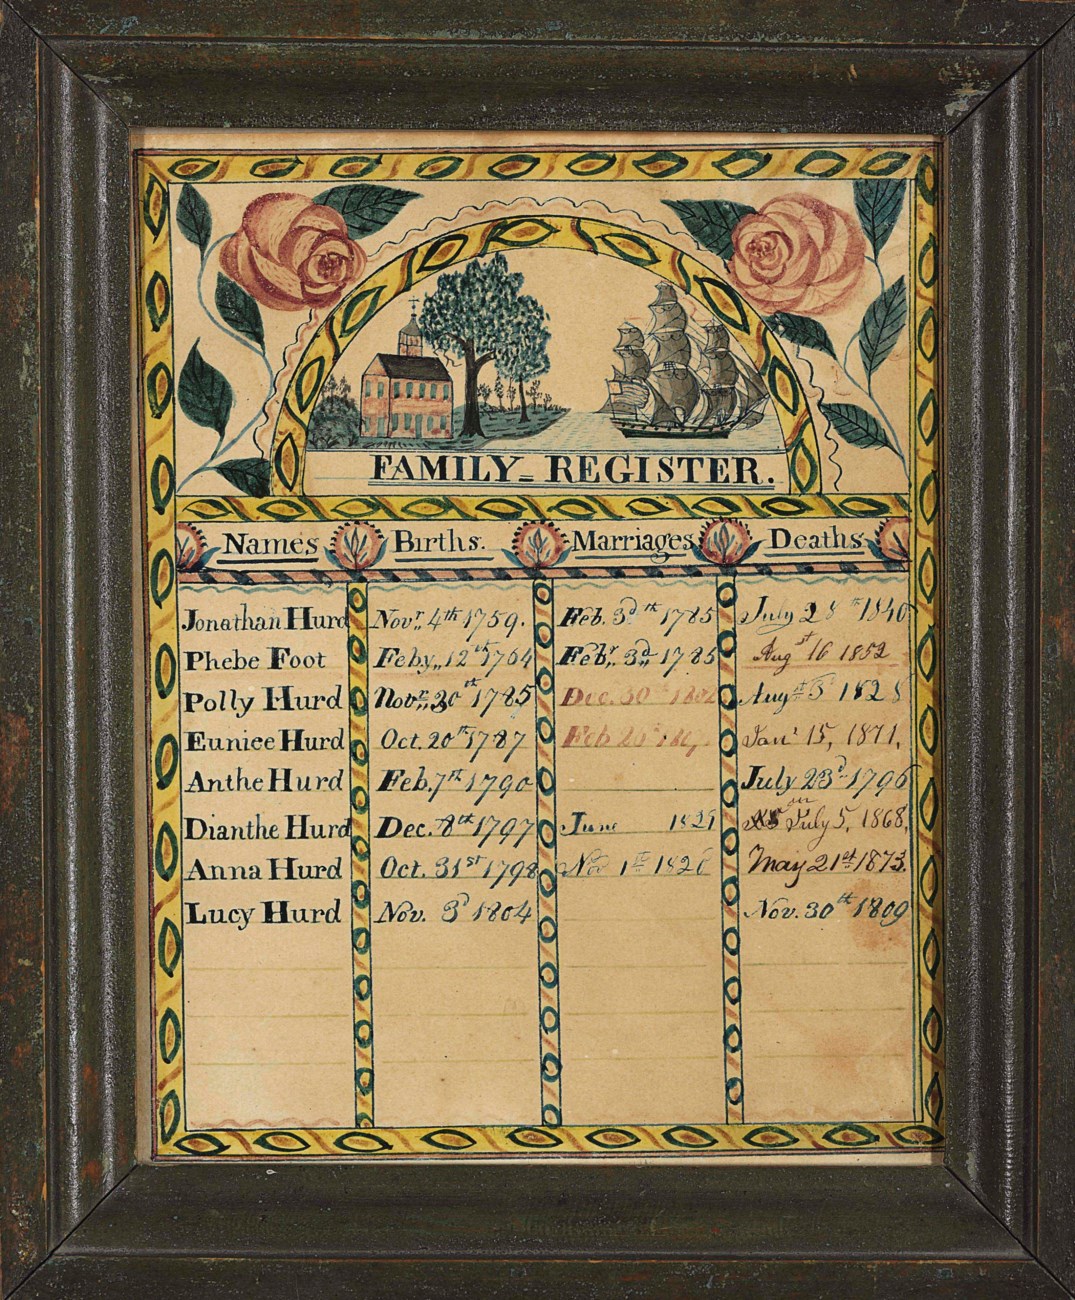 FAMILY = REGISTER.
Names Births. Marriages Deaths.
Jonathan Hurd Novr. 4th 1759. Feb. 3d 1785 July 28th 1840
Phebe Foot Feby 12th 1764 Febr. 3d 1785 Augst 16 1852
Polly Hurd Novr. 30th 1785 Dec. 30th Augst 3 1828
Eunice Hurd Oct. 20th 1787 Feb 1871.
Anthe Hurd Feb. 7th 1790 July 23d 1796
Dianthe Hurd Dec. 8th 1797 June 1821 July 5, 1868,
Anna Hurd Oct. 31st 1798 Nov 1st May 21st 1873.
Lucy Hurd Nov. 3d 1804 Nov. 30th 1809